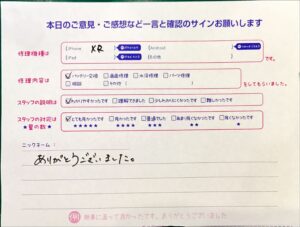 本日のご意見・ご感想など一言と確認のサインお願いします
修理機種は
iPhone XR
Android
iPad
その他
です。
修理内容は
バッテリー交換 画面修理 水没修理 パーツ修理
その他
をしてもらいました。
スタッフの説明は
わかりやすかったです 理解できました 少しわかりにくかったです 難しかったです
スタッフの対応は
★星の数★
とても良かったです 良かったです 普通でした あまり良くなかったです 良くなかったです
★★★★★ ★★★★ ★★★ ★★ ★
ニックネーム:
ありがとうございました。
修理に出って良かったです。ありがとうございました